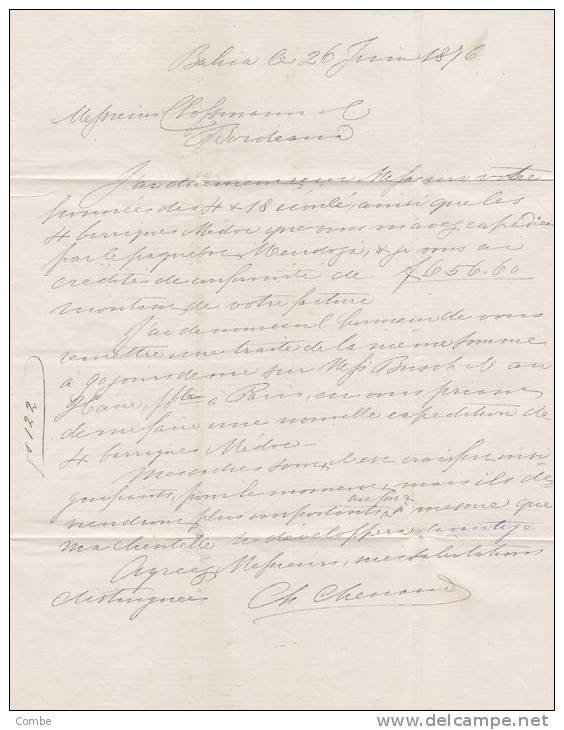 Bahia le 26 Juin 1876
Messieurs Clossmann & C
Bordeaux
J'ai dûment reçu Messieurs votre
honorées des 4 & 18 écoulé, ainsi que les
4 barriques Médoc que vous m'avez expédiées
par le paquebot Mendoza, & je vous ai
crédités de conformité de f 656.60
montant de votre facture
J'ai de nouveau l'honneur de vous
remettre une traite de la même somme
à 90 jours de vue sur Mess Busch & C au
Havre, pble à Paris, en vous priant
de me faire une nouvelle expédition de
4 barriques Médoc -
Mes ordres sont, il est vrai, peu insi
gnifiants, pour le moment, mais ils de=
viendront plus importants au fur & à mesure que
ma clientelle se développera davantage
Agréez, Messieurs, mes salutations
distinguées Ch Chenaud
122
Combe
www.delcampe.net